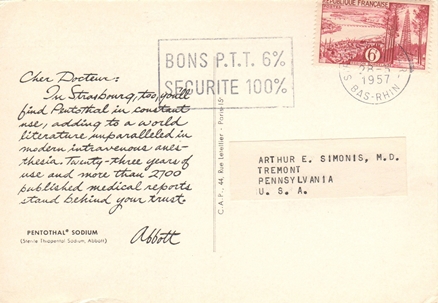 RÉPUBLIQUE FRANÇAISE
6F
BONS P.T.T. 6%
SECURITE 100%
1957
S BAS-RHIN
Cher Docteur:
In Strasbourg, too, you'll
find Pentothal in constant
use, adding to a world
literature unparalleled in
modern intravenous anes-
thesia. Twenty-three years of
use and more than 2700
published medical reports
stand behind your trust.
Abbott
PENTOTHAL® SODIUM
(Sterile Thiopental Sodium, Abbott)
C.A.P., 44, Rue Letellier - Paris 15e
ARTHUR E. SIMONIS, M.D.
TREMONT
PENNSYLVANIA
U. S. A.